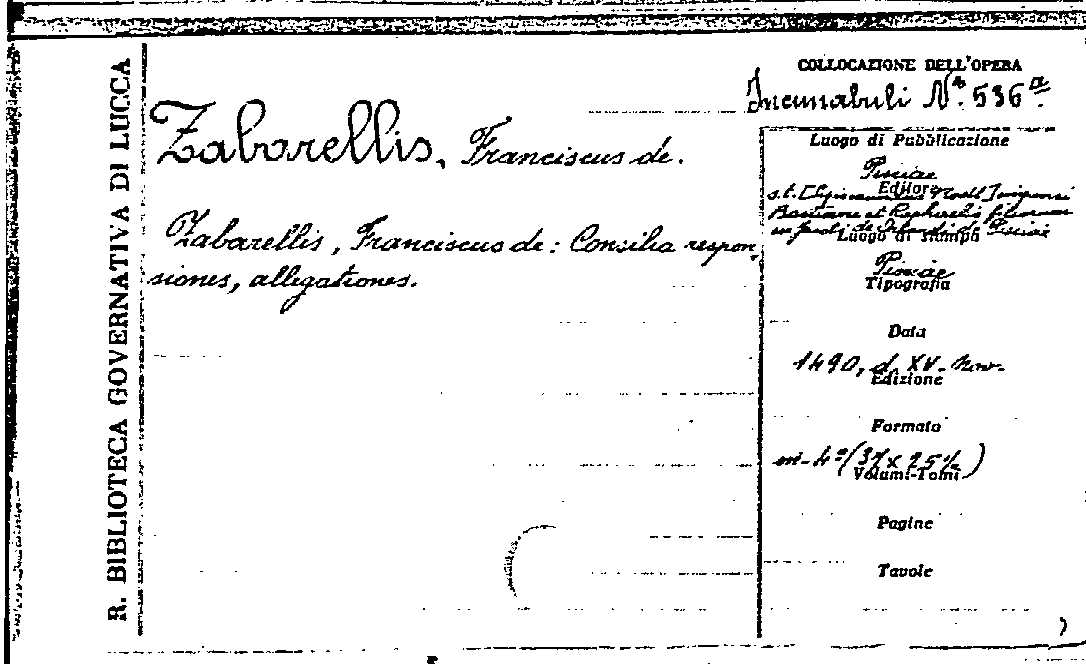 R. BIBLIOTECA GOVERNATIVA DI LUCCA
COLLOCAZIONE DELL'OPERA
Incunabuli N.º 536ª
Zabarellis, Franciscus de.
Zabarellis, Franciscus de: Consilia respon-
siones, allegationes.
Luogo di Pubblicazione
Pisciae
Editore
s.t.
Bastiano et Raphaelis
de Pisciae
Luogo di stampa
Pisciae
Tipografia
Data
1490, d. XV. Nov.
Edizione
Formato
in-4º (37 x 25
Volumi-Tomi
Pagine
Tavole